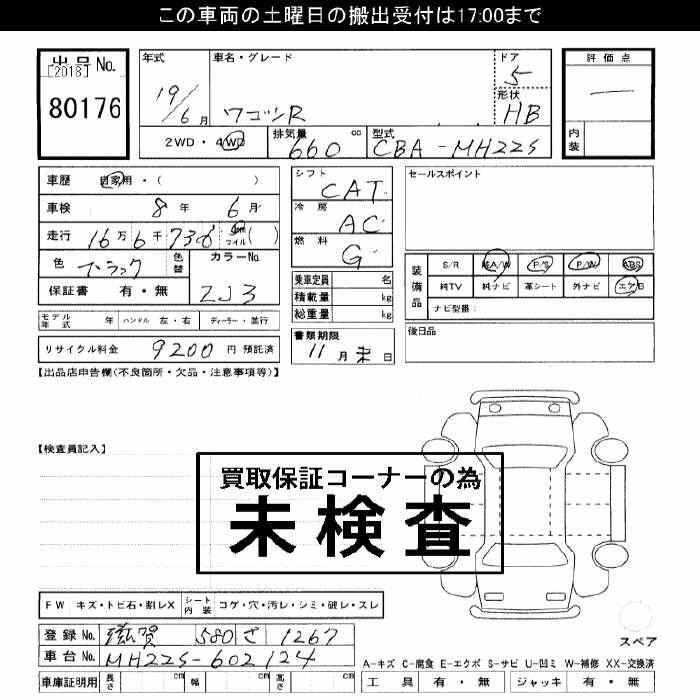 この車両の土曜日の搬出受付は17:00まで
出品No.
[2018]
80176
年式
19/6月
車名・グレード
ワゴンR
ドア
5
形状
HB
評価点
—
内装
2WD・4WD
排気量
660 cc
型式
CBA-MH22S
車歴 自家用・( )
車検 8年 6月
走行 16万6千736 km マイル ( )
色 ブラック
色替
カラーNo.
ZJ3
保証書 有・無
モデル年式 年 ハンドル 左・右 ディーラー・並行
リサイクル料金 9200 円 預託済
シフト
CAT
冷房
AC
燃料
G
乗車定員 名
積載量 kg
総重量 kg
書類期限
11月末日
セールスポイント
装備品
S/R 純A/W P/S P/W ABS
純TV 純ナビ 革シート 外ナビ エアB
ナビ型番:
後日品
【出品店申告欄(不良箇所・欠品・注意事項等)】
【検査員記入】
買取保証コーナーの為
未検査
FW キズ・トビ石・割レX
シート内装 コゲ・穴・汚レ・シミ・破レ・スレ
登録No. 滋賀 580 さ 1267
車台No. MH22S-602124
車庫証明用 長さ cm 幅 cm 高さ cm
スペア
A-キズ C-腐食 E-エクボ S-サビ U-凹ミ W-補修 XX-交換済
工具 有・無 ジャッキ 有・無